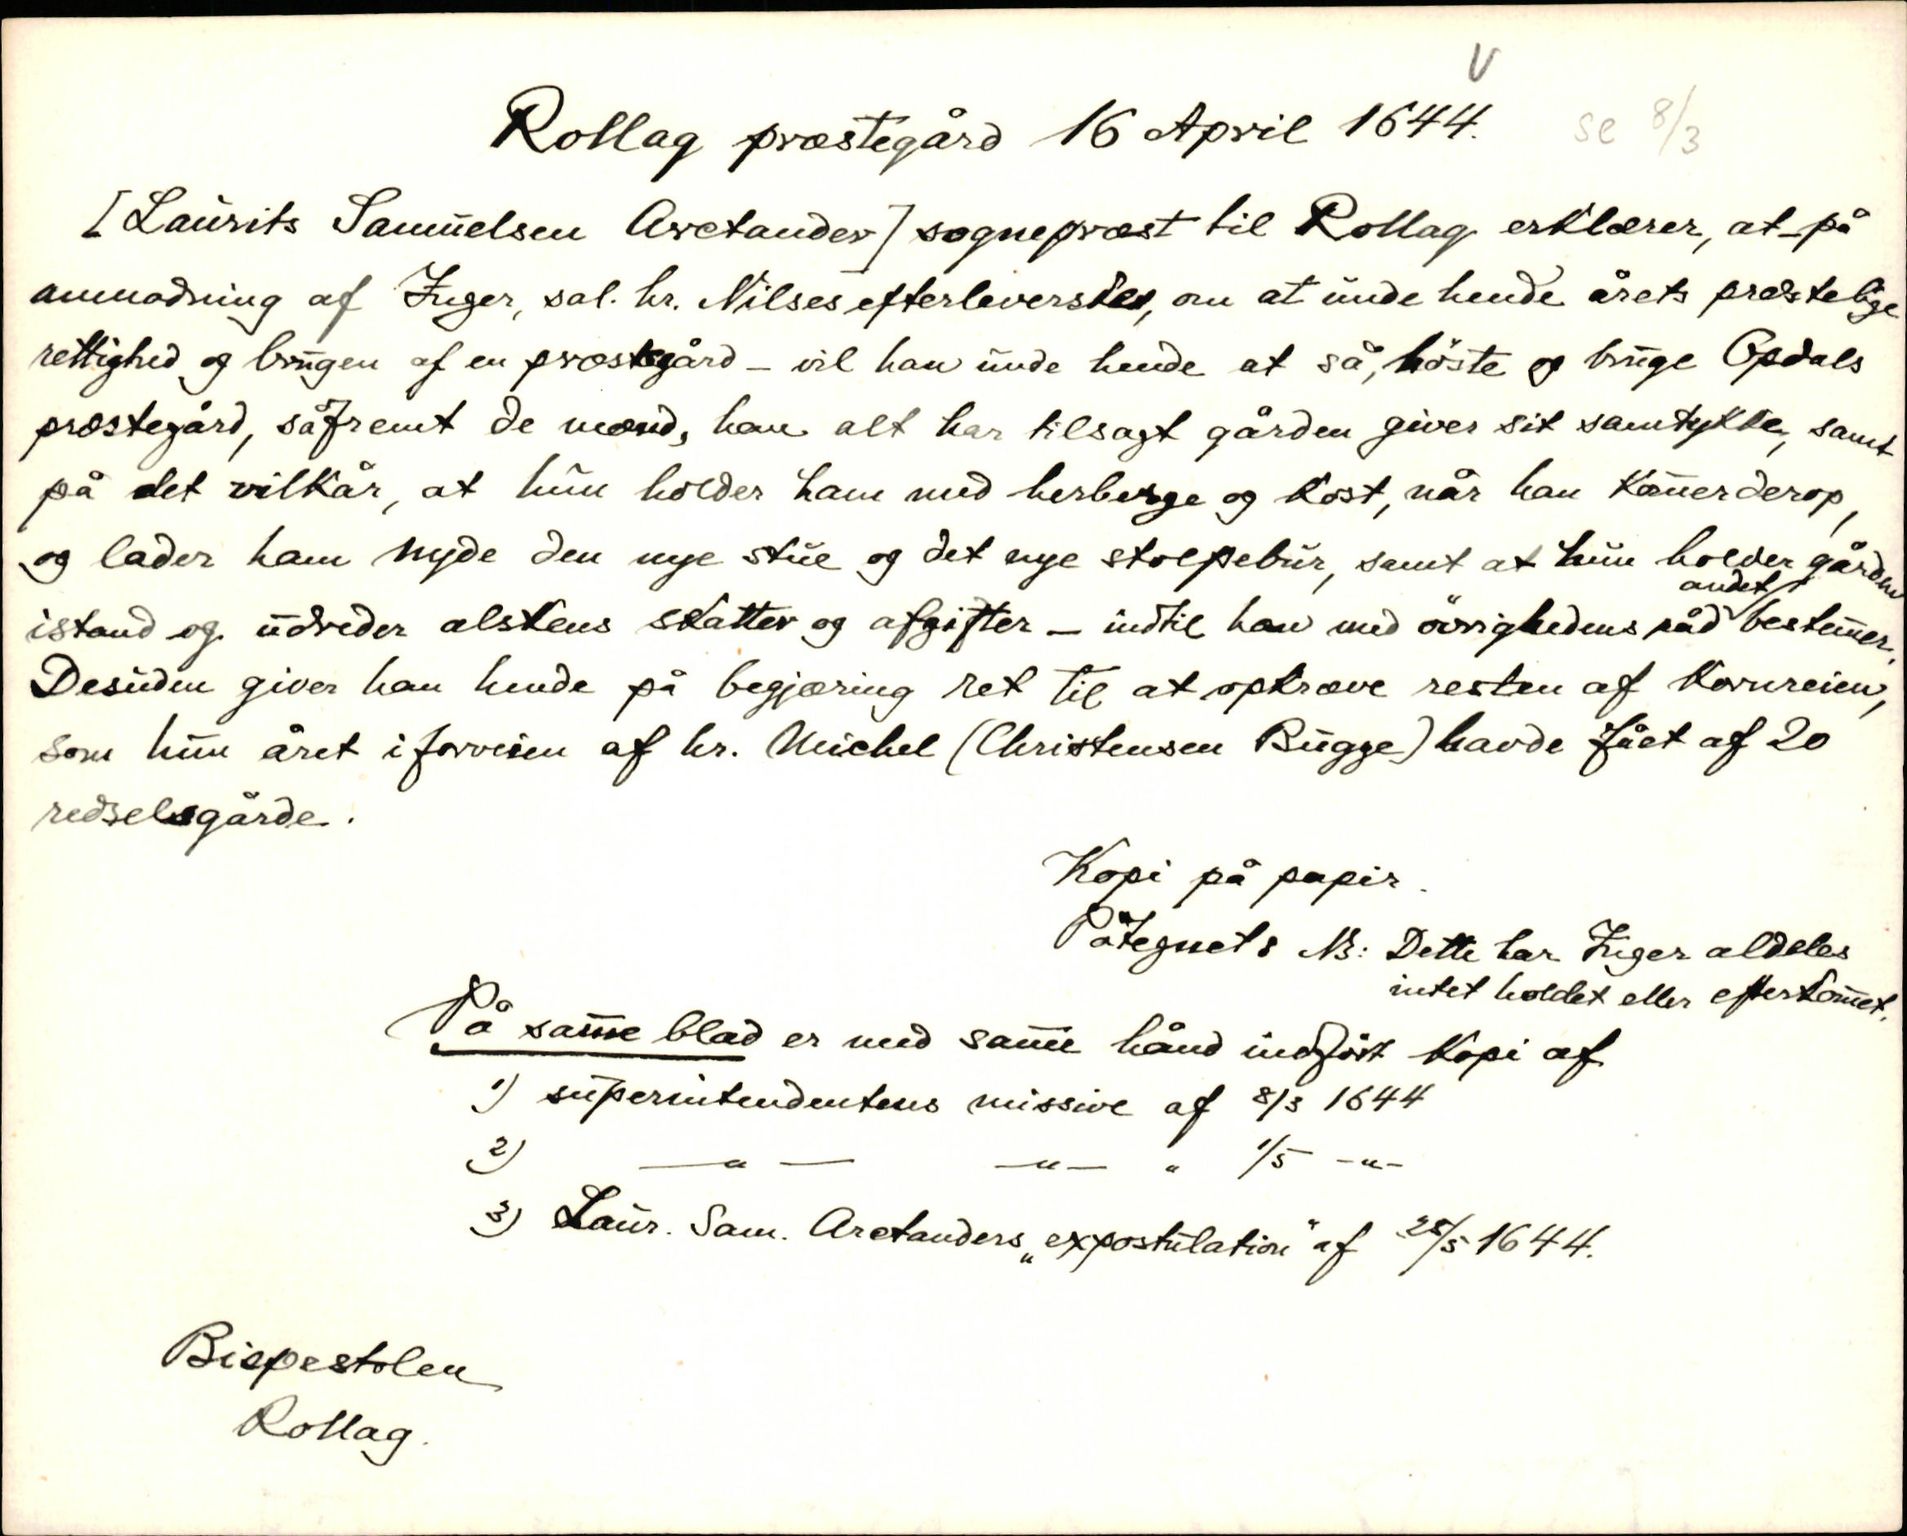 V
Rollag præstegård 16 April 1644. se 8/3
[Laurits Samuelsen Arctander] sognepræst til Rollag erklærer, at på
anmodning af Inger, sal. hr. Nilses efterleverske, om at unde hende årets præstelige
rettighed og brugen af en præstegård – vil han unde hende at så, höste og bruge Opdals
præstegård, såfremt de mænd, han alt har tilsagt gården giver sit samtykke, samt
på det vilkår, at hun holder ham med herberge og kost, når han kom̅er derop,
og lader ham nyde den nye stue og det nye stolpebur, samt at hun holder gården
istand og udreder alskens skatter og afgifter – indtil han med övrighedens råd andet bestem̅er.
Desuden giver han hende på begjæring ret til at opkræve resten af kornreien,
som hun året iforveien af hr. Michel (Christensen Bugge) havde fået af 20
redselsgårde.
Kopi på papir.
Påtegnet: NB: Dette har Inger aldeles
intet holdet eller efterkom̅et.
På sam̅e blad er med sam̅e hånd indfört kopi af
1) superintendentens missive af 8/3 1644
2) —„— —„— „ 1/5 -„-
3) Laur. Sam. Arctanders „expostulation" af 28/5 1644.
Bispestolen
Rollag.